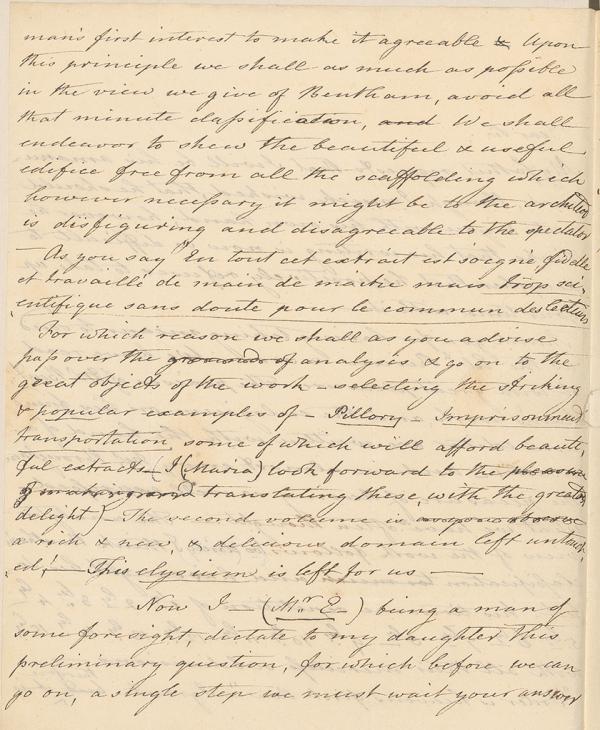 man's first interest to make it agreeable & Upon
this principle we shall as much as possible
in the view we give of Bentham, avoid all
that minute classification, and We shall
endeavor to shew the beautiful & useful
edifice free from all the scaffolding which
however necessary it might be to the architect
is disfiguring and disagreeable to the spectator
— As you say "En tout cet extrait est soigné fidelle
et travaillé de main de maitre mais trop sci-
entifique sans doute pour le commun des lecteurs
For which reason we shall as you advise
pass over the grounds of analysis & go on to the
great objects of the work – selecting the striking
& popular examples of – Pillory – Imprisonment
transportation some of which will afford beauti-
ful extracts – (I (Maria) look forward to the pleasure
of making and translating these, with the greatest
delight) – The second volume is
a rich & new, & delicious domain left untouch-
ed! — This elysium is left for us —
Now I — (Mr. E–) being a man of
some foresight, dictate to my daughter this
preliminary question, for which before we can
go on, a single step we must wait your answer